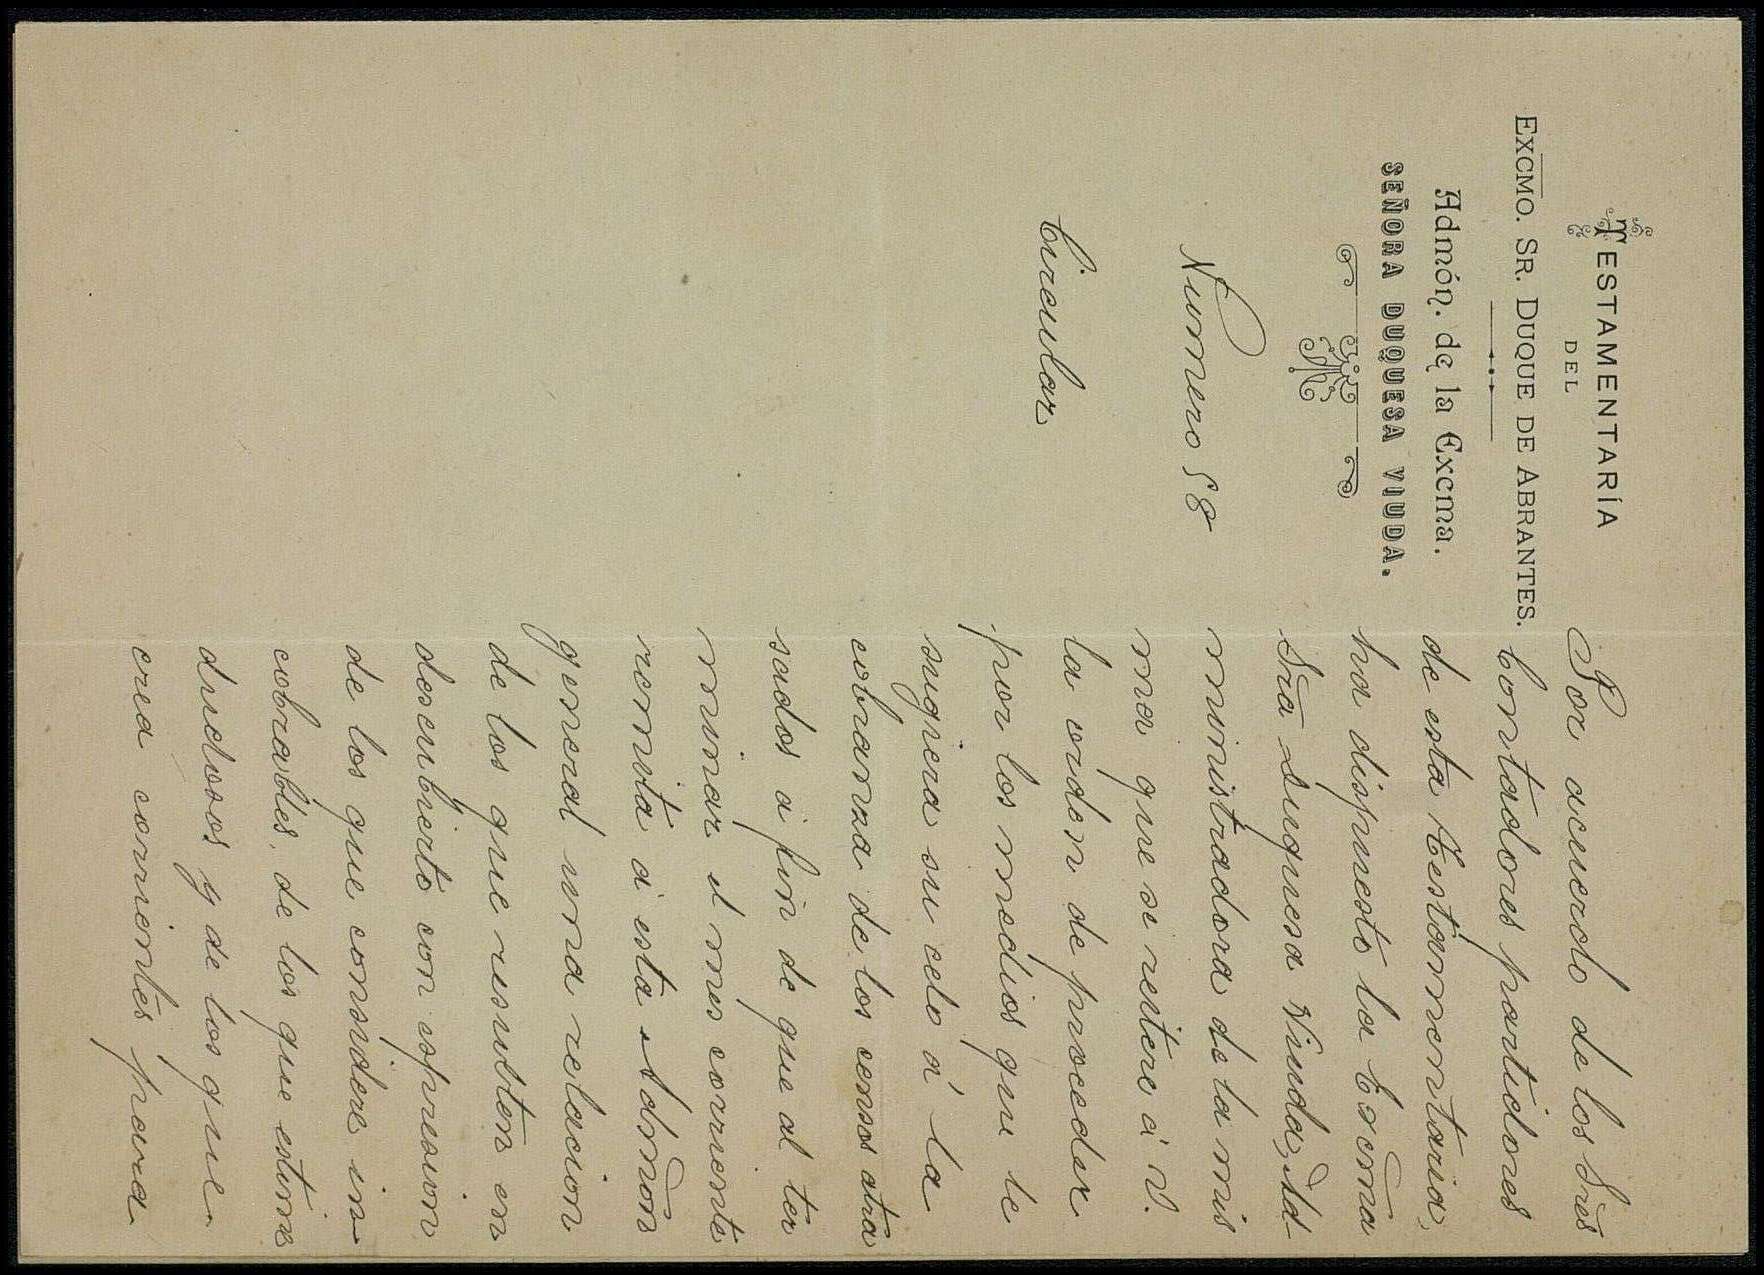 TESTAMENTARÍA
DEL
EXCMO. SR. DUQUE DE ABRANTES.
Admón. de la Excma.
SEÑORA DUQUESA VIUDA.
Numero 58
Circular
Por acuerdo de los Sres
Contadores partidores
de esta testamentaria,
ha dispuesto la Excma
Sra Duquesa Viuda, Ad
ministradora de la mis
ma que se reitere á V.
la orden de proceder
por los medios que le
sugiera su celo á la
cobranza de los censos atra
sados á fin de que al ter
minar el mes corriente
remita á esta Admon
general una relacion
de los que resulten en
descubierto con espresion
de los que considere in
cobrables, de los que estime
dudosos y de los que
crea corrientes para